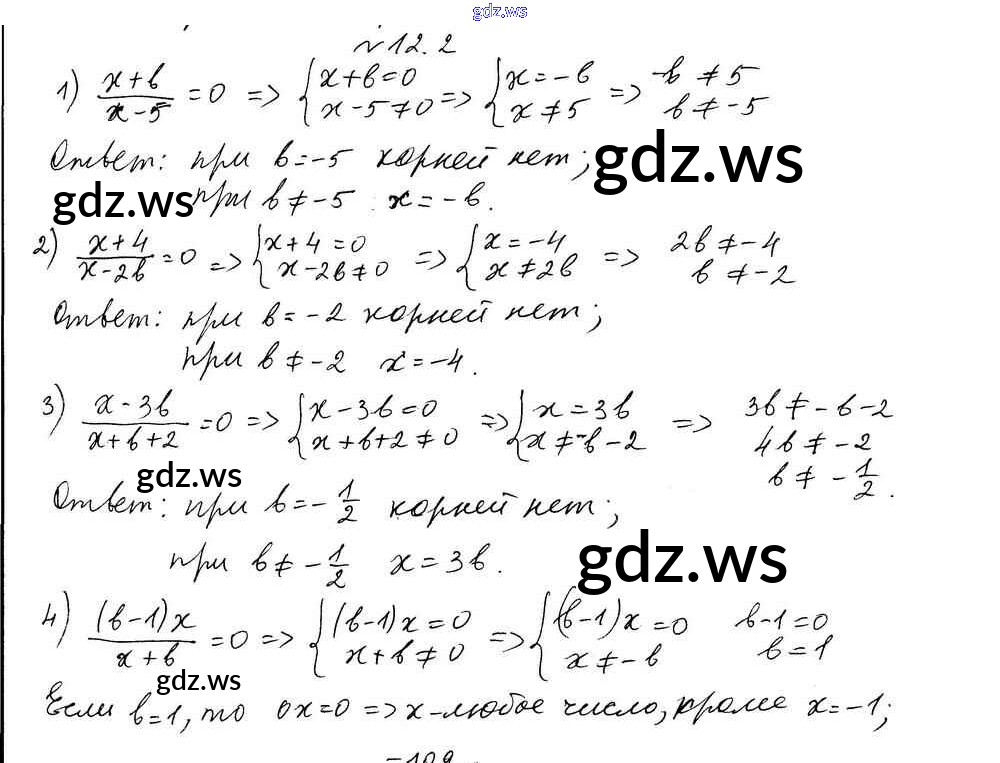 gdz.ws
№12.2
1) (x+b)/(x-5) = 0 => { x+b=0; x-5≠0 => { x=-b; x≠5 => -b≠5; b≠-5
Ответ: при b=-5 корней нет;
gdz.ws
при b≠-5 x=-b.
gdz.ws
2) (x+4)/(x-2b) = 0 => { x+4=0; x-2b≠0 => { x=-4; x≠2b => 2b≠-4; b≠-2
Ответ: при b=-2 корней нет;
при b≠-2 x=-4.
3) (x-3b)/(x+b+2) = 0 => { x-3b=0; x+b+2≠0 => { x=3b; x≠-b-2 => 3b≠-b-2; 4b≠-2; b≠-1/2.
gdz.ws
Ответ: при b=-1/2 корней нет;
при b≠-1/2 x=3b.
gdz.ws
4) ((b-1)x)/(x+b) = 0 => { (b-1)x=0; x+b≠0 => { (b-1)x=0; x≠-b b-1=0; b=1
gdz.ws
Если b=1, то 0x=0 => x-любое число, кроме x=-1;